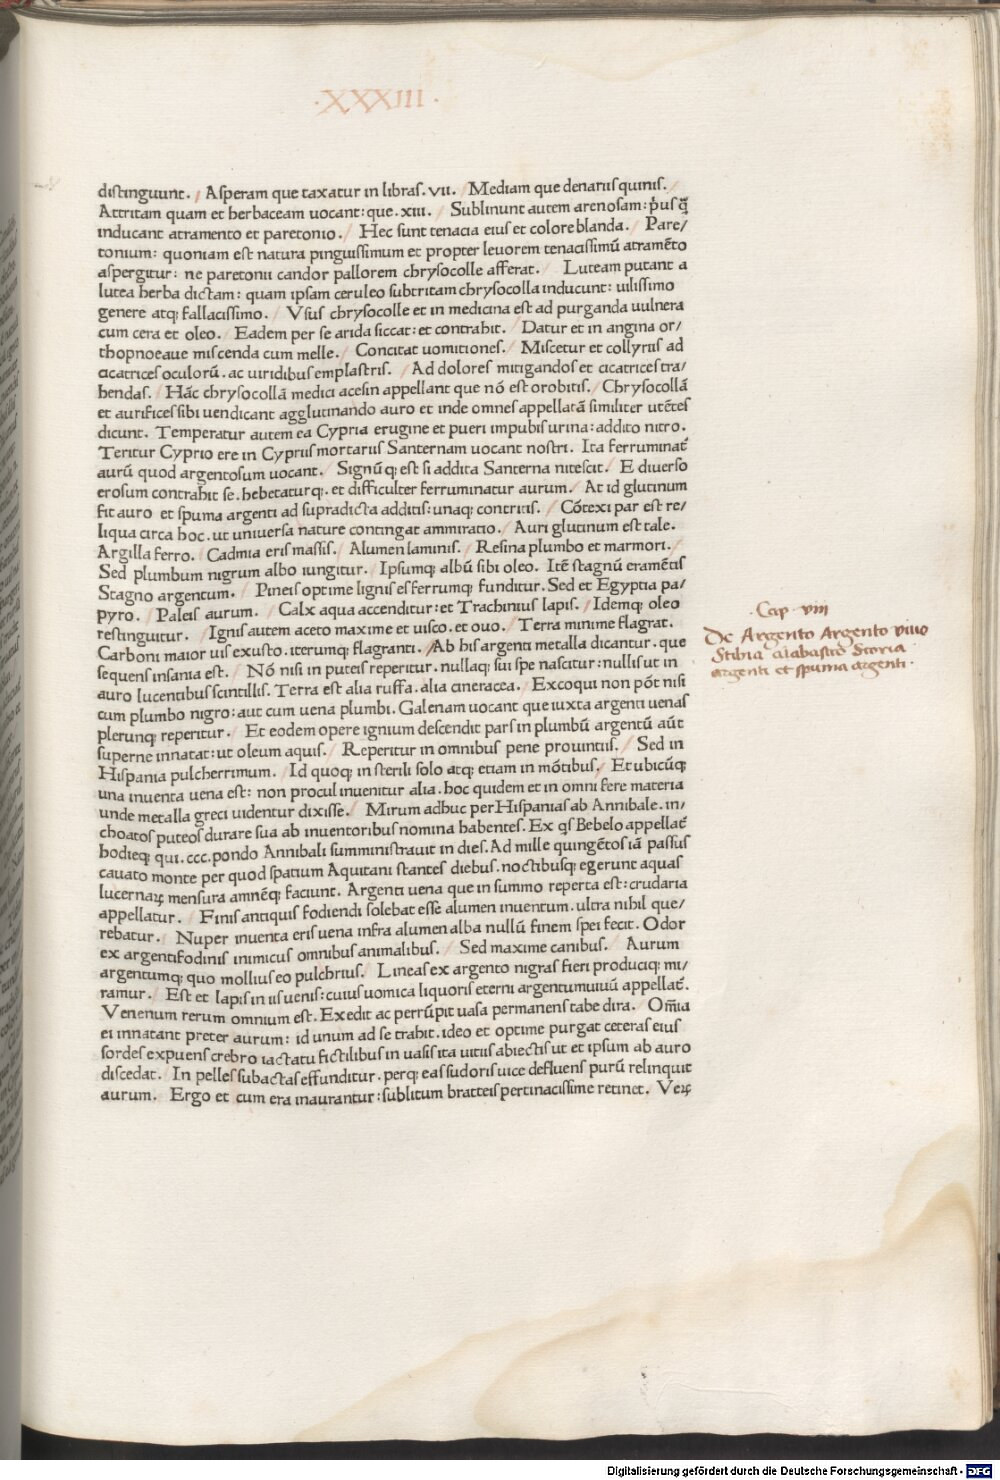 ·XXXIII·
distinguunt. / Asperam que taxatur in libras. vii. / Mediam que denariis quinis. /
Attritam quam et herbaceam uocant: que. xiii. / Sublinunt autem arenosam: p̄us q̄
inducant atramento et paretonio. / Hec sunt tenacia eius et colore blanda. / Pare/
tonium: quoniam est natura pinguissimum et propter leuorem tenacissimū atramēto
aspergitur: ne paretonii candor pallorem chrysocolle afferat. / Luteam putant a
lutea herba dictam: quam ipsam ceruleo subtritam chrysocolla inducunt: uilissimo
genere atq; fallacissimo. / Vsus chrysocolle et in medicina est ad purganda uulnera
cum cera et oleo. / Eadem per se arida siccat: et contrahit. / Datur et in angina or/
thopnoeaue miscenda cum melle. / Concitat uomitiones. / Miscetur et collyriis ad
cicatrices oculorū. ac uiridibus emplastris. / Ad dolores mitigandos et cicatrices tra/
hendas. / Hāc chrysocollā medici acesin appellant que nō est orobitis. / Chrysocollā
et aurifices sibi uendicant agglutinando auro et inde omnes appellatā similiter utētes
dicunt. Temperatur autem ea Cypria erugine et pueri impubis urina: addito nitro.
Teritur Cyprio ere in Cypriis mortariis Santernam uocant nostri. Ita ferruminat̄
aurū quod argentosum uocant. / Signū q; est si addita Santerna nitescit. / E diuerso
erosum contrahit se. hebetaturq;. et difficulter ferruminatur aurum. / At id glutinum
fit auro et spuma argenti ad supradicta additis: unaq; contritis. / Cōtexi par est re/
liqua circa hoc. ut uniuersa nature contingat ammiratio. / Auri glutinum est tale.
Argilla ferro. / Cadmia eris massis. / Alumen laminis. / Resina plumbo et marmori. /
Sed plumbum nigrum albo iungitur. / Ipsumq; albū sibi oleo. Itē stagnū eramētis
Stagno argentum. / Pineis optime lignis es ferrumq; funditur. Sed et Egyptia pa/
pyro. / Paleis aurum. / Calx aqua accenditur: et Trachinius lapis. / Idemq; oleo
restinguitur. / Ignis autem aceto maxime et uisco. et ouo. / Terra minime flagrat.
Carboni maior uis exusto. iterumq; flagranti. / Ab his argenti metalla dicantur. que
sequens insania est. / Nō nisi in puteis reperitur. nullaq; sui spe nascitur: nullis ut in
auro lucentibus scintillis. Terra est alia ruffa. alia cineracea. / Excoqui non pōt nisi
cum plumbo nigro: aut cum uena plumbi. Galenam uocant que iuxta argenti uenas
plerunq; reperitur. / Et eodem opere ignium descendit pars in plumbū argentū aūt
superne innatat: ut oleum aquis. / Reperitur in omnibus pene prouintiis. / Sed in
Hispania pulcherrimum. / Id quoq; in sterili solo atq; etiam in mōtibus. / Et ubicūq;
una inuenta uena est: non procul inuenitur alia. hoc quidem et in omni fere materia
unde metalla greci uidentur dixisse. / Mirum adhuc per Hispanias ab Annibale. in/
choatos puteos durare sua ab inuentoribus nomina habentes. Ex q̄s Bebelo appellat̄
hodieq; qui. ccc. pondo Annibali sumministrauit in dies. Ad mille quingētos iā passus
cauato monte per quod spatium Aquitani stantes diebus. noctibusq; egerunt aquas
lucernaꝝ mensura amnēq; faciunt. Argenti uena que in summo reperta est: crudaria
appellatur. / Finis antiquis fodiendi solebat esse alumen inuentum. ultra nihil que/
rebatur. / Nuper inuenta eris uena infra alumen alba nullū finem spei fecit. Odor
ex argentifodinis inimicus omnibus animalibus. / Sed maxime canibus. / Aurum
argentumq; quo mollius eo pulchrius. / Lineas ex argento nigras fieri produciq; mi/
ramur. / Est et lapis in iis uenis: cuius uomica liquoris eterni argentumuiuū appellat̄.
Venenum rerum omnium est. Exedit ac perrūpit uasa permanens tabe dira. / Om̄ia
ei innatant preter aurum: id unum ad se trahit. ideo et optime purgat ceteras eius
sordes expuens crebro iactatu fictilibus in uasis ita uitiis abiectis ut et ipsum ab auro
discedat. / In pelles subactas effunditur. perq; eas sudoris uice defluens purū relinquit
aurum. / Ergo et cum era inaurantur: sublitum bratteis pertinacissime retinet. Veꝝ
·Cap· viii
De Argento Argento viuo
Stibia alabastro Scoria
argenti et spuma argenti·
Digitalisierung gefördert durch die Deutsche Forschungsgemeinschaft - DFG